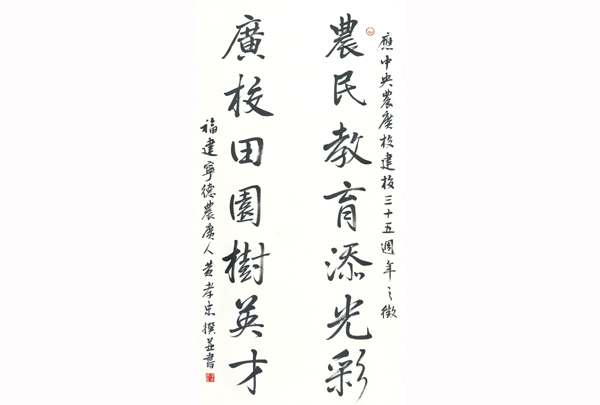 應中央農廣校建校三十五週年之徵
農民教育添光彩
廣校田園樹英才
福建寧德農廣人黄孝忠撰並書